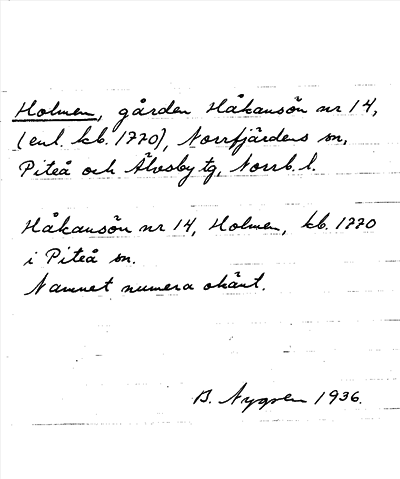 Holmen, gården Håkansön nr 14,
(enl. kb. 1770), Norrfjärdens sn,
Piteå och Älvsby tg, Norrb. l.
Håkansön nr 14, Holmen, kb. 1770
i Piteå sn.
Namnet numera okänt.
B. Nygren 1936.